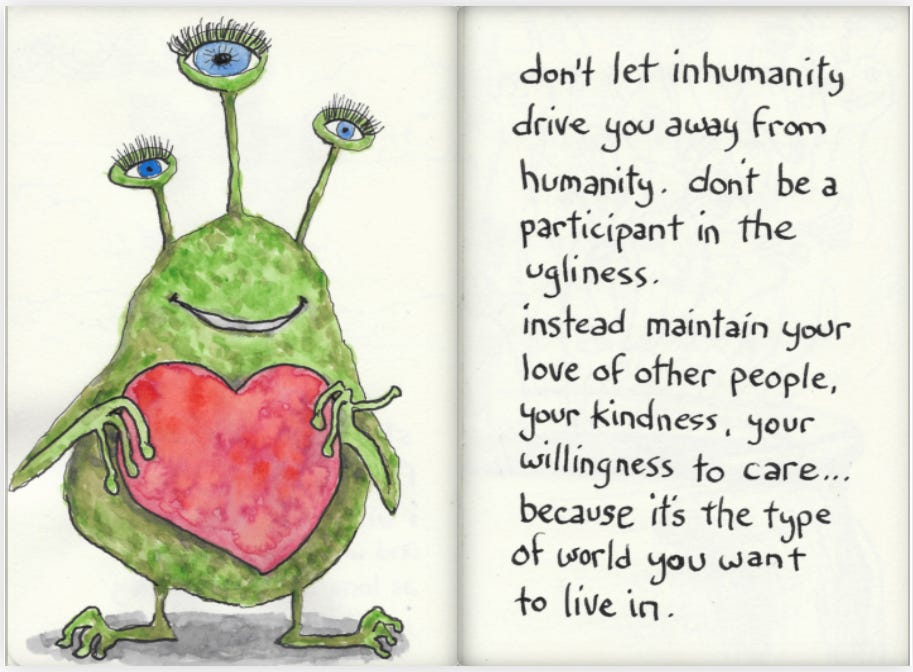 don't let inhumanity
drive you away from
humanity. don't be a
participant in the
ugliness.
instead maintain your
love of other people,
your kindness, your
willingness to care...
because it's the type
of world you want
to live in.